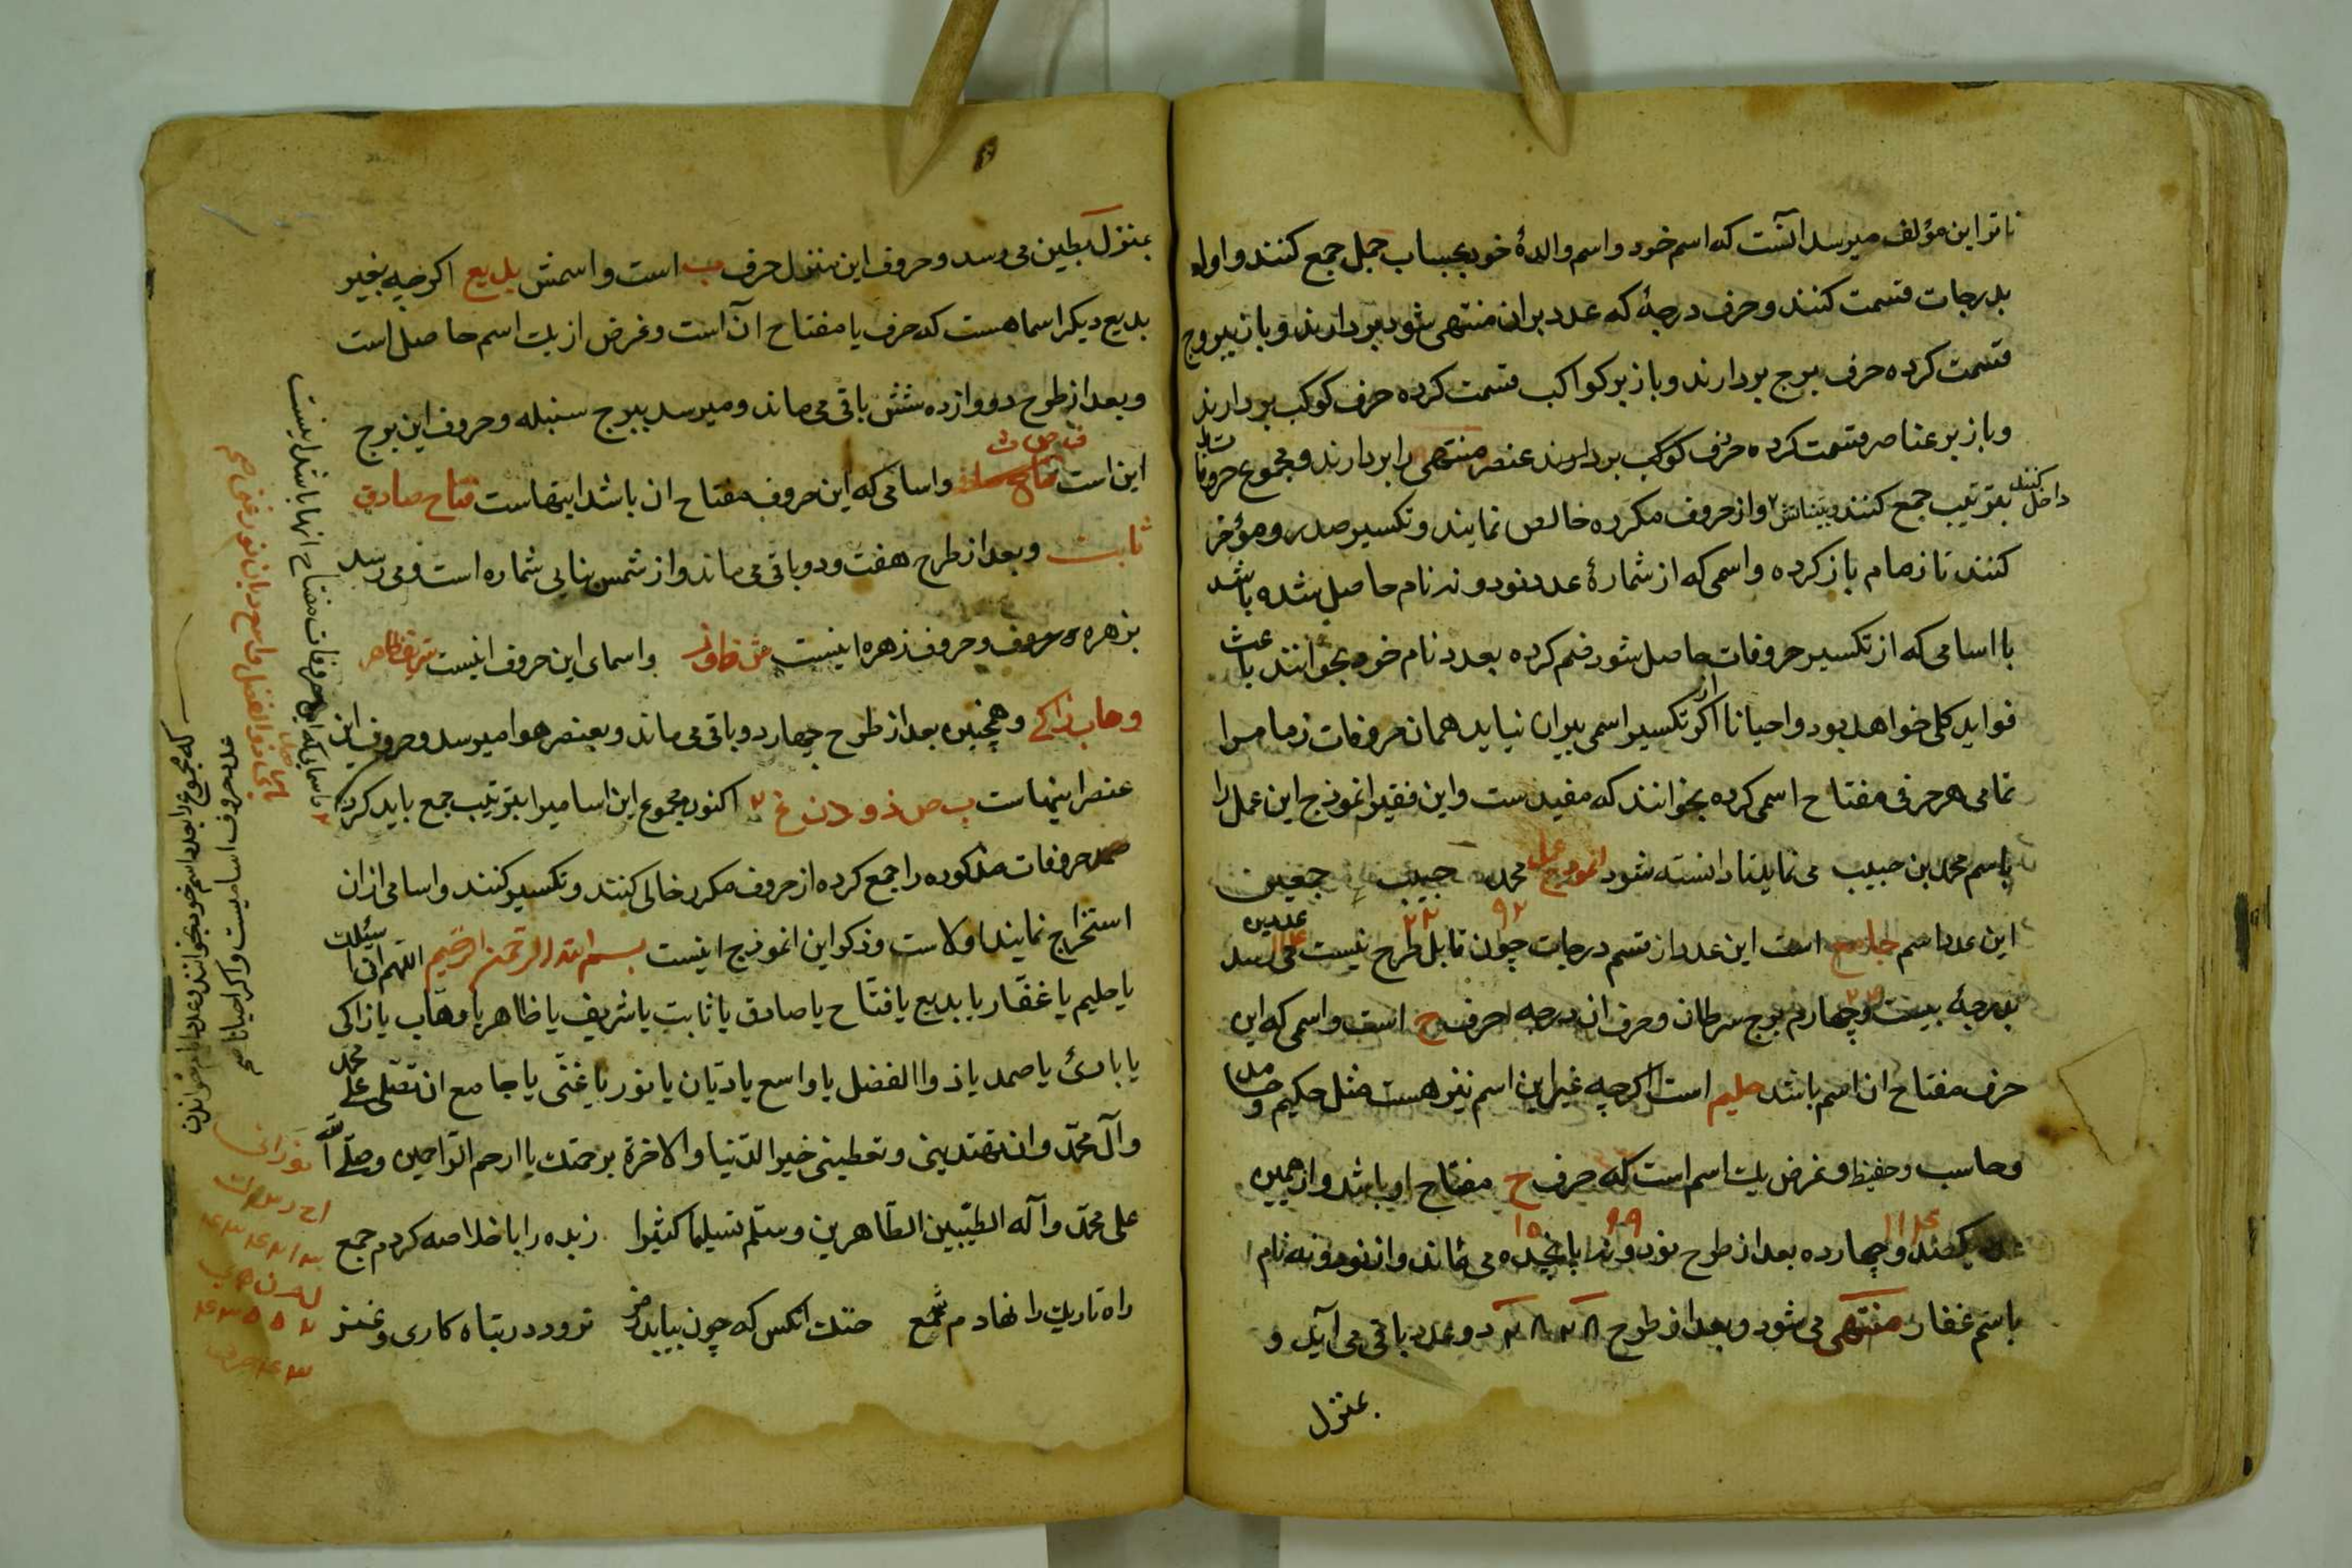 ناتر این مؤلف میرسد آنست که اسم خود و اسم والدهٔ خود بحساب جمل جمع کنند و اولا
بدرجات قسمت کنند و حرف درجهٔ که عدد بران منتهی شود بردارند و باز ببروج
قسمت کرده حرف برج بردارند و باز بر کواکب قسمت کرده حرف کوکب بردارند
و باز بر عناصر قسمت کرده حرف کوکب بردارند عنصر منتهی را بردارند و مجموع حروفات
بترتیب جمع کنند و بیناتش داخل کنند و از حروف مکرره خالص نمایند و تکسیر صدر و مؤخر
کنند تا زمام باز کرده و اسمی که از شمارهٔ عدد نود و نه نام حاصل شده باشد
با اسامی که از تکسیر حروفات حاصل شود ضم کرده بعدد نام خود بخوانند باعث
فواید کلی خواهد بود و احیانا اگر از تکسیر اسمی بیرون نیاید همان حروفات زمام را
تمامی هر حرفی مفتاح اسمی کرده بخوانند که مفیدست و این فقیر انموذج این عمل را
باسم محمد بن حبیب می نماید تا دانسته شود انموذج عمل محمد حبیب جمعین
۹۲ ۲۲
این عدد اسم جامع است این عدد از قسم درجات چون قابل طرح نیست می رسد
بدرجهٔ بیست و چهارم برج سرطان و حرف ان درجه حرف ح است و اسمی که این
حرف مفتاح ان اسم باشد حلیم است اگرچه غیر این اسم نیز هست مثل حکیم و حامد
و حاسب و حفیظ و غرض یک اسم است که حرف ح مفتاح او باشد و از همین
۱۱۴ ۹۹ ۱۵
عدد یکصد و چهارده بعد از طرح نود و نه پانجده می ماند و از نود و نه نام
باسم غفار منتهی می شود و بعد از طرح ۲۸ ۲۸ دو عدد باقی می آید و
بمنزل
بمنزل بطین می رسد و حروف این منزل حرف ب است و اسمش بدیع اگرچه بغیر
بدیع دیگر اسما هست که حرف با مفتاح آن است و غرض از یک اسم حاصل است
و بعد از طرح دووازده شش باقی می ماند و میرسد ببرج سنبله و حروف این برج
ف ص ث
این است و اسامی که این حروف مفتاح ان باشد اینهاست فتاح صادق
ثابت و بعد از طرح هفت و دو باقی می ماند و از شمس بنایی شماره است و می رسد
بزهره و حروف زهره اینست و اسمای این حروف اینست شریف ظاهر
وهاب زاکی و همچنین بعد از طرح چهار دو باقی می ماند و بعنصر هوا میرسد و حروف این
عنصر اینهاست ب ص ذ و د ن غ اکنون مجموع این اسامیرا بترتیب جمع باید کرد
حروفات مذکوره را جمع کرده از حروف مکرر خالی کنند و تکسیر کنند و اسامی ازان
استخراج نمایند اولاست و ذکر این انموذج اینست بسم الله الرحمن الرحیم اللهم انی اسئلک
یا حلیم یا غفار یا بدیع یا فتاح یا صادق یا ثابت یا شریف یا ظاهر یا وهاب یا زاکی
یا بادئ یا صمد یا ذوا الفضل یا واسع یا دیان یا نور یا غنی یا جامع ان تصلی علی محمد
وآل محمد وان تهدینی وتعطینی خیر الدنیا والاخرة برحمتك یا ارحم الراحمین وصلی الله
علی محمد وآله الطیبین الطاهرین وسلم تسلیما کثیرا زبده را با خلاصه کردم جمع
راه تاریک را نهادم شمع خنک انکس که چون بیابد نرود در تباه کاری و غمز
و اسمای که این حروفات مفتاح انها باشد اینست
بادی صمد ذوالفضل واسع دیان نور غنی صح
عدد حروف اسامیست و اگر احیانا صح
که مجموع را بعدد اسم خود بخوانند و بعدد نام خواندن